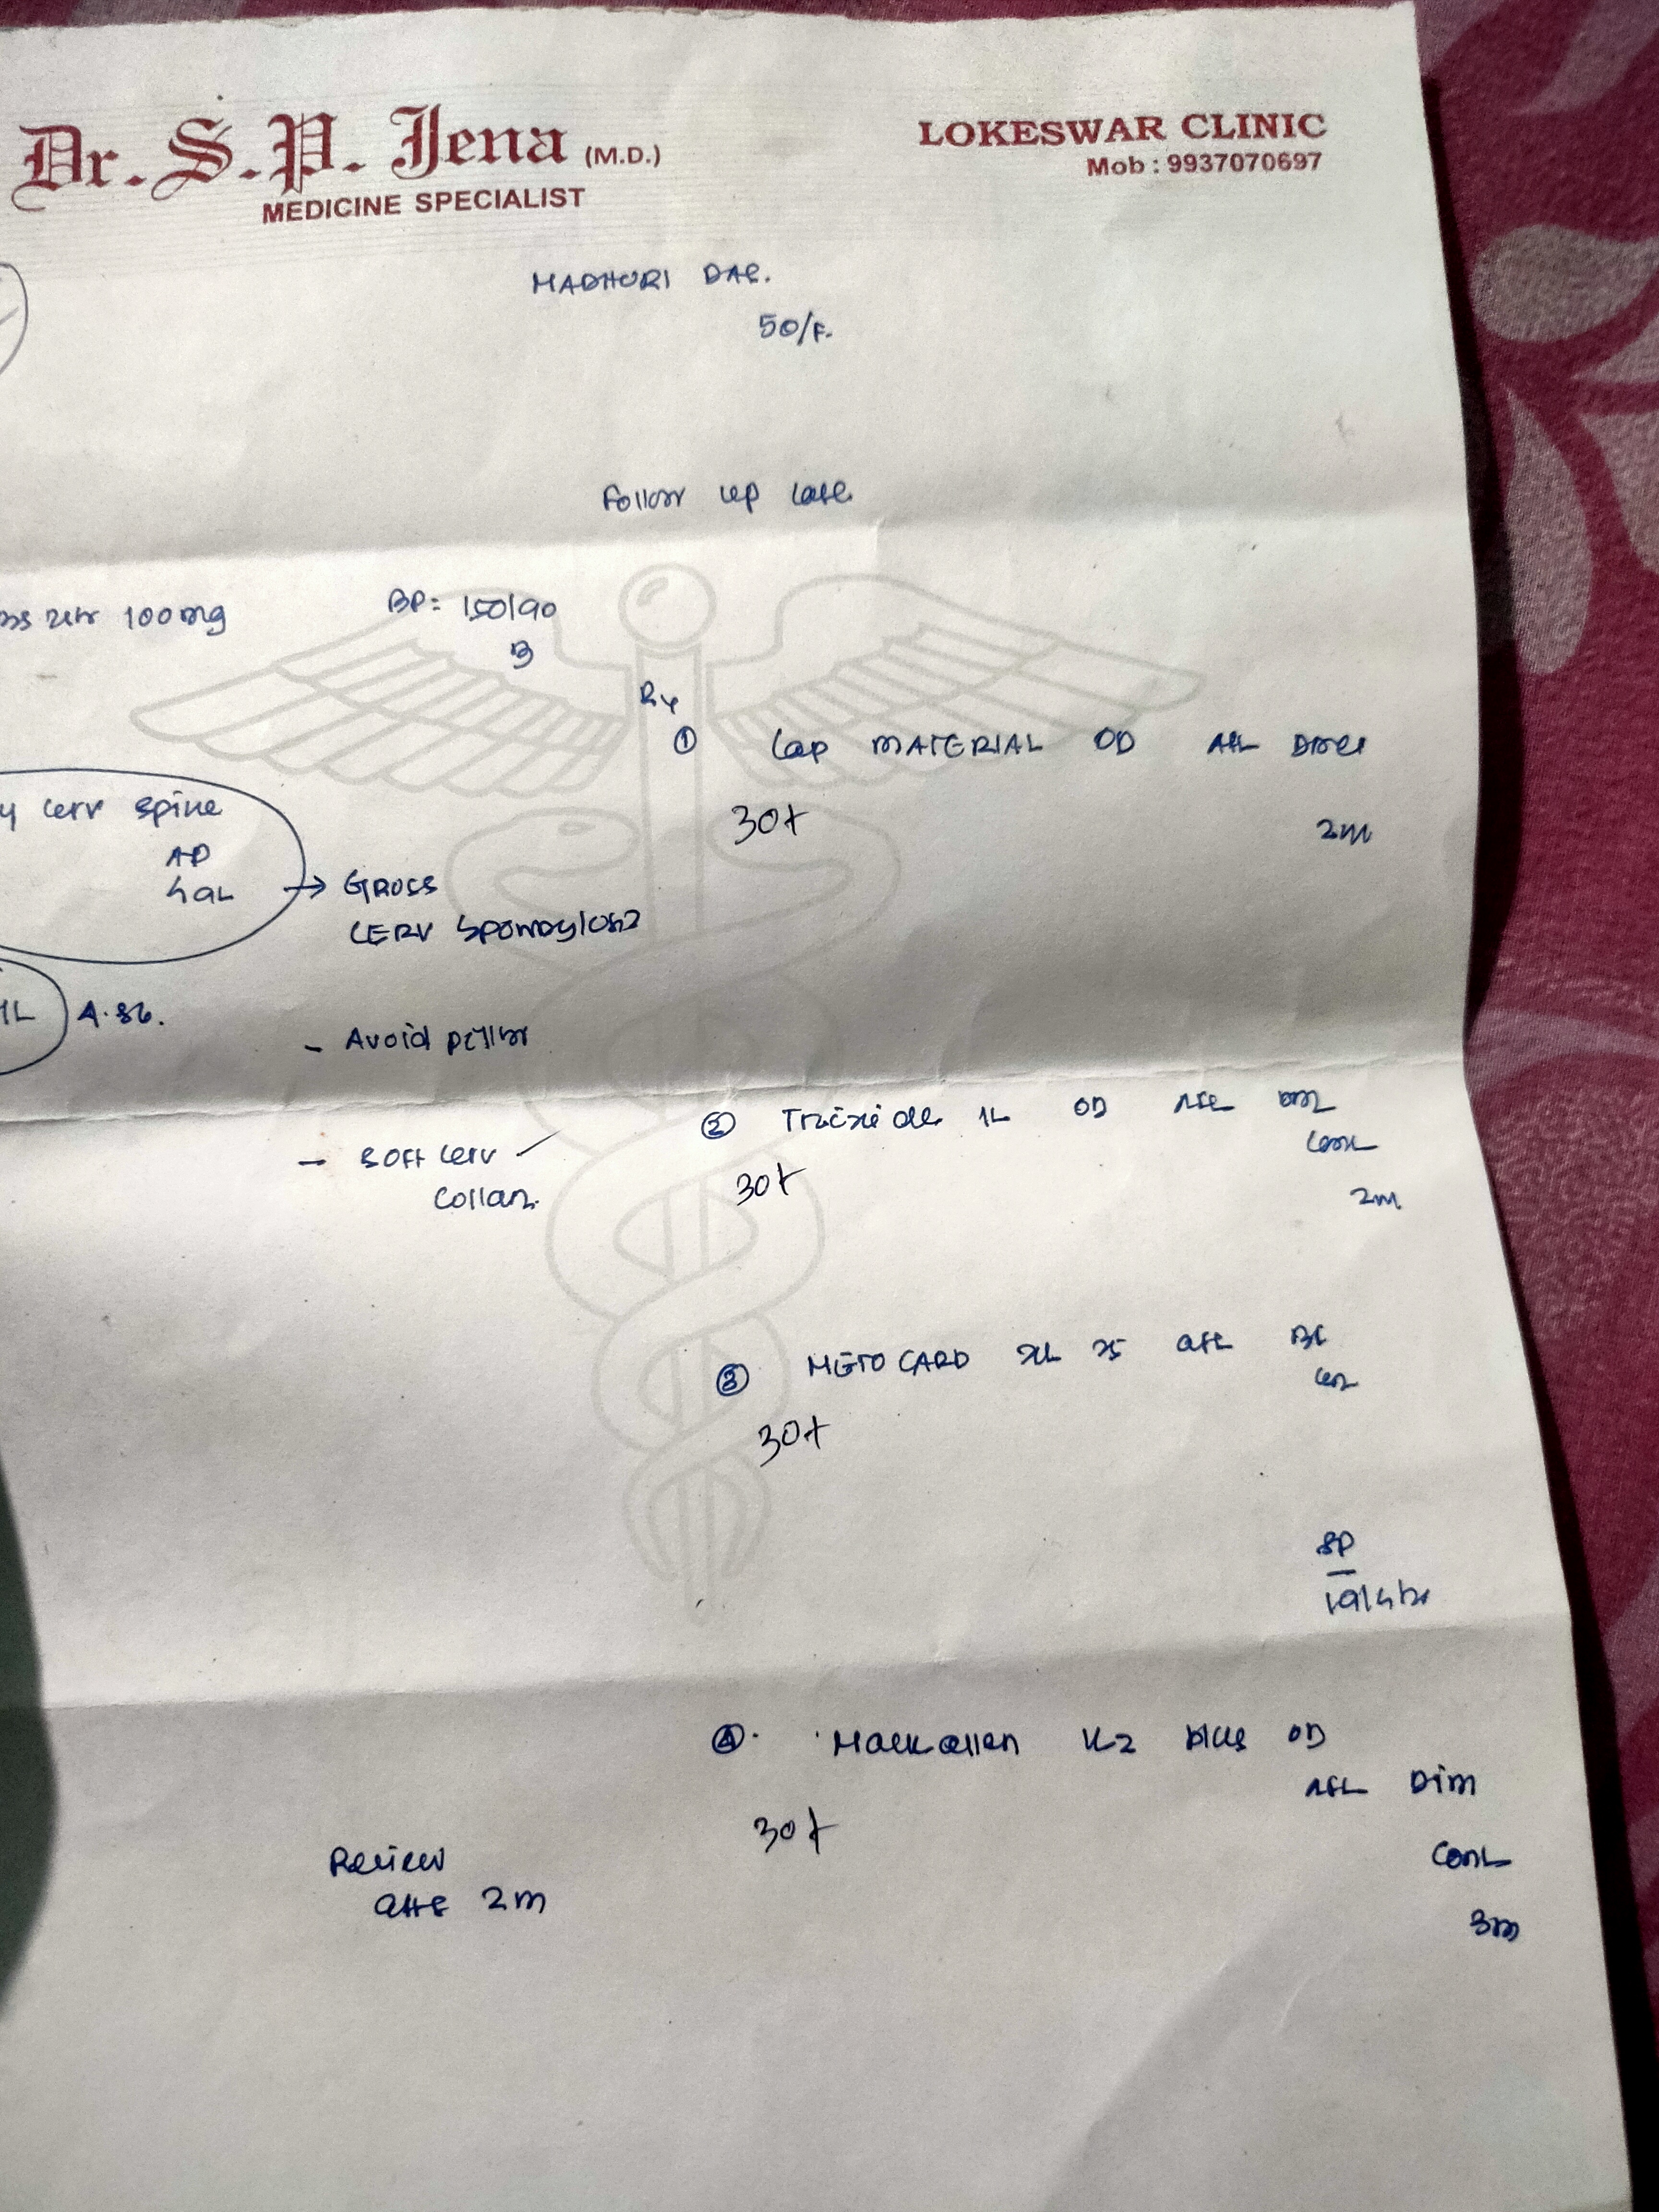 Dr. S. P. Jena (M.D.)
MEDICINE SPECIALIST
LOKESWAR CLINIC
Mob : 9937070697
MADHURI DAS.
50/F.
Follow up case
100 mg
BP: 150/90
Rx
① Cap MATERIAL OD Aft Dinner
30t
2m
cerv spine
AP
Lat → GROSS
CERV Spondylosis
4.86.
- Avoid pillow
- Soft cerv
Collar.
② OD Aft
30t
Cont
2m
③ METOCARD XL 25 aft BF
Cont
30t
SP
④. K2 plus OD
Aft Din
30t
Cont
3m
Review
after 2m